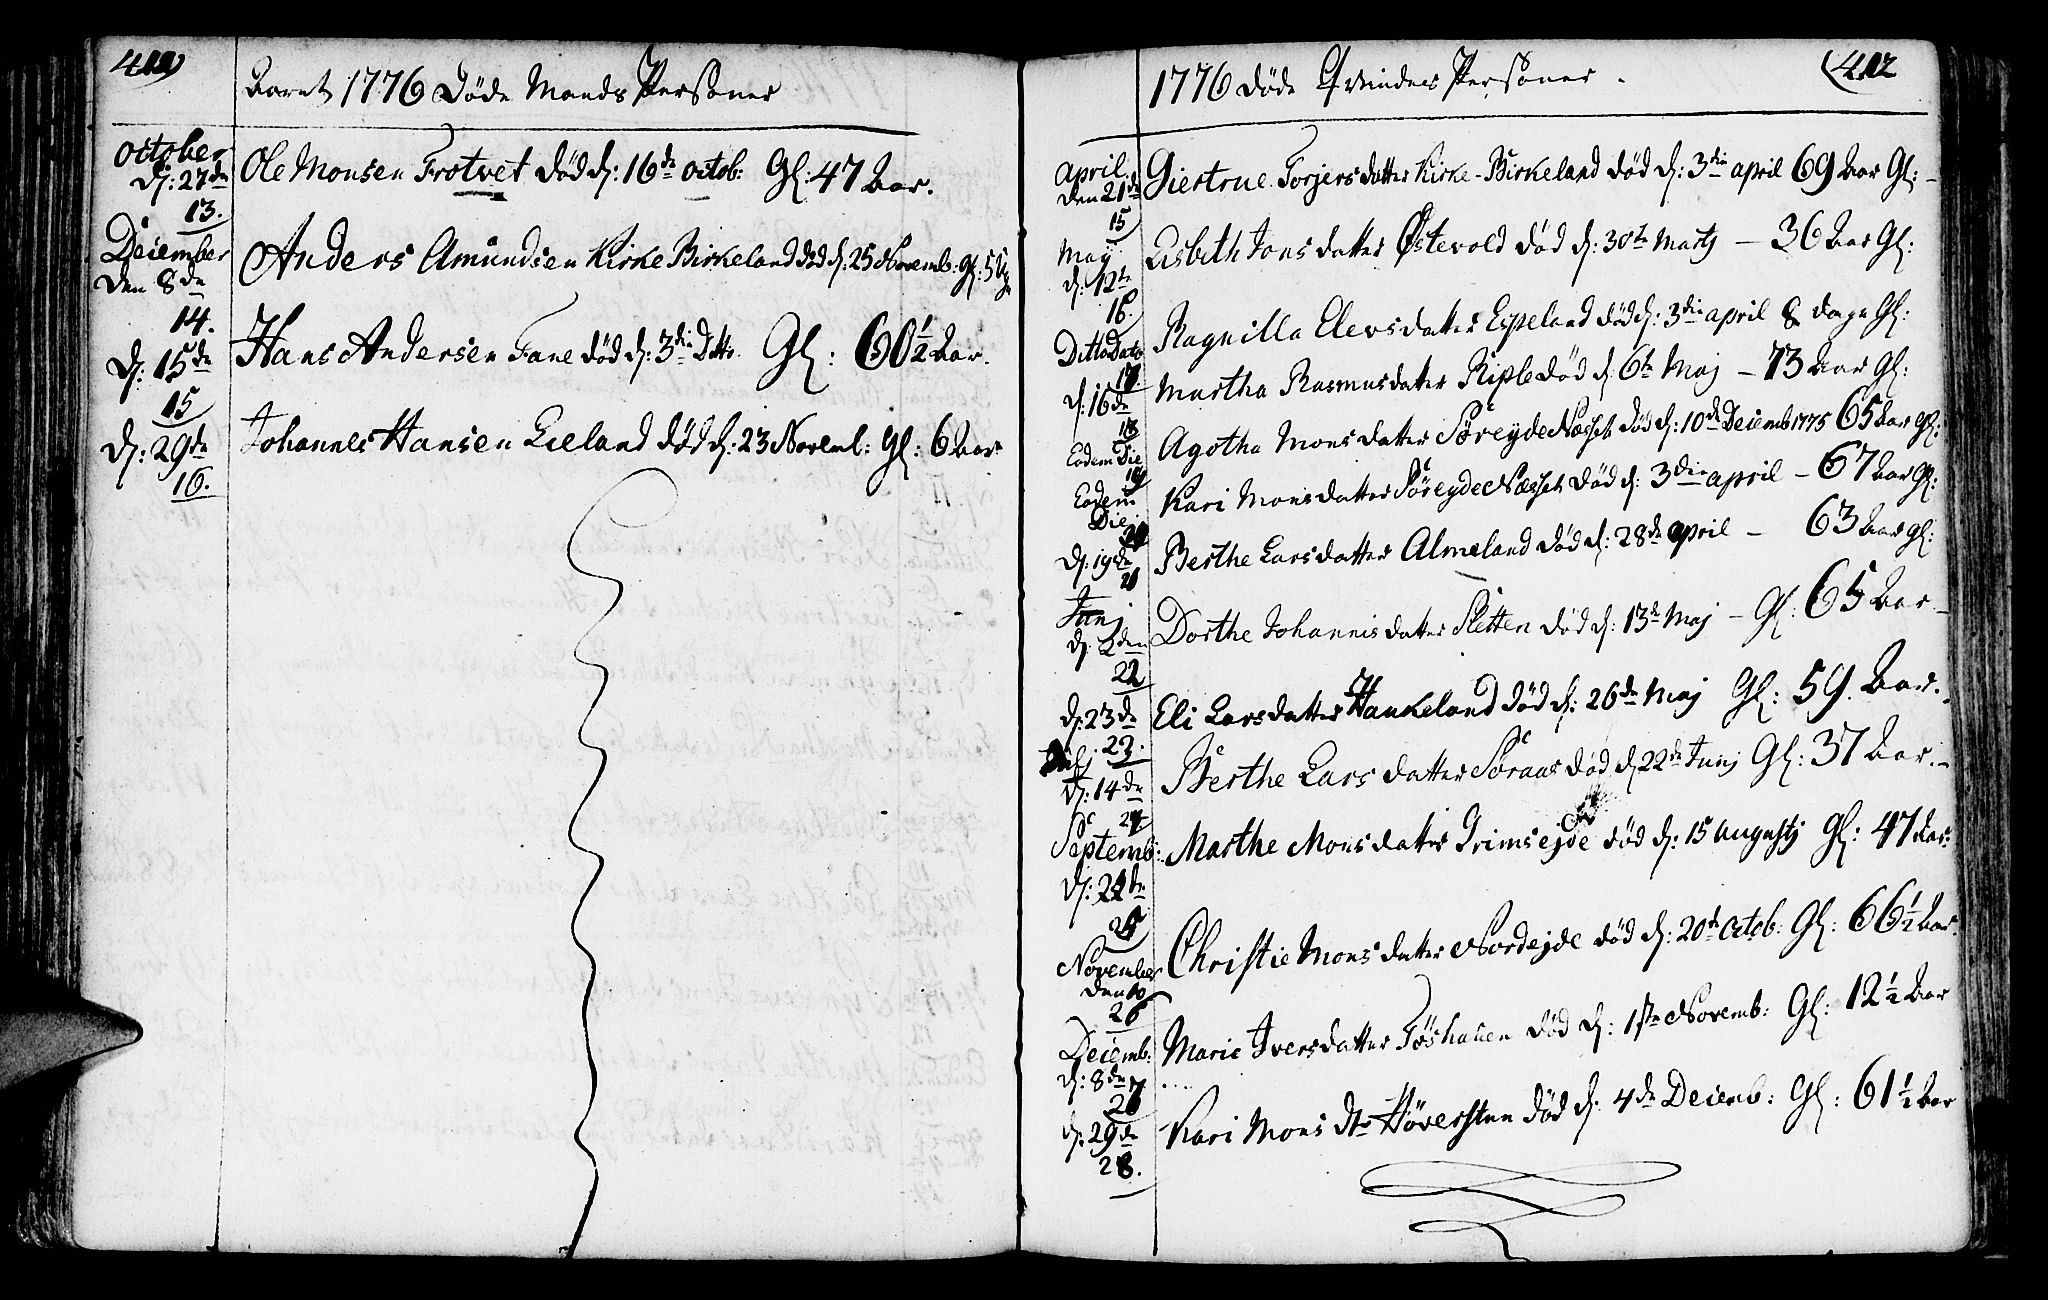 411)
Aaret 1776 Døde Mands Personer
October
d: 27de Ole Monsen Trotvet død d: 16de octob: Gl: 47 Aar.
13.
December
den 8de Anders Amundsen Kirke Birkeland død d: 25 Novemb: Gl: 5 Uger
14.
d: 15de Hans Andersen Fane død d: 3die Ditto. Gl: 60½ Aar.
15
d: 29de Johannes Hansen Lieland død d: 23 Novemb: Gl: 6 Aar
16.
(412
1776 døde Qvindes Personer.
April
den 21de Giertrue Torjersdatter Kirke-Birkeland død d: 3die april 69 Aar Gl:
15
May
d: 12te Lisbeth Jonsdatter Østevold død d: 30te Martj – 36 Aar Gl:
16.
Ditto Dato Ragnilla Elersdatter Espeland død d: 3die april 8 dage Gl:
17
d: 16de Martha Rasmusdatter Riple død d: 6te Maj – 73 Aar Gl:
18
Eodem Die Agotha Monsdatter Søreyde Næsset død d: 10de Decemb 1775 65 Aar gl:
19
Eodem Die Kari Monsdatter Søreyde Næsset død d: 3die april – 67 Aar gl:
20
d: 19de Berthe Larsdatter Almeland død d: 28de april – 63 Aar gl:
21
Junj
d. 2den Dorthe Johannisdatter Sletten død d: 13de Maj – Gl: 65 Aar –
22
d: 23de Eli Larsdatter Haukeland død d: 26de Maj Gl: 59. Aar.
23.
Julj
d: 14de Berthe Larsdatter Søraas død d 22de Junj Gl: 37 Aar.–
24
Septemb:
d: 22de Marthe Monsdatter Grimsejde død d: 15 Augustj Gl: 47 Aar:
25
November
den 10 Christie Monsdatter Nordejde død d: 20de Octob: Gl: 66½ Aar.
26
Decemb:
d: 8de Marie Iversdatter Tøshauen død d: 1ste Novemb: Gl: 12½ Aar
27
d: 29de Kari Mons dtr Høversten død d: 4de Decemb: Gl: 61½ Aar
28.